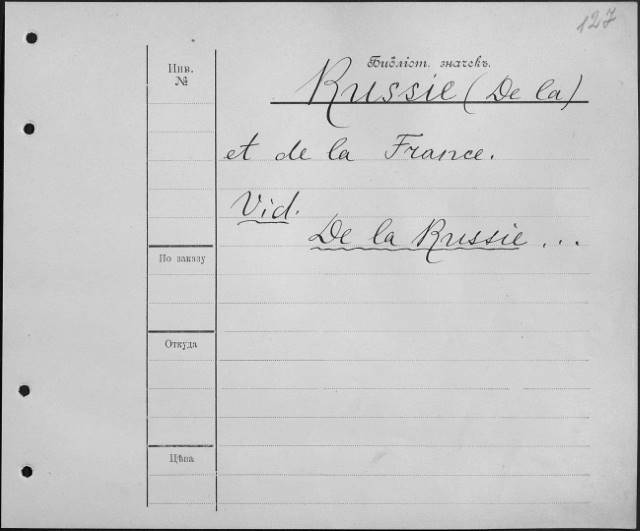 127
Инв.
№
Библіот. значекъ.
Russie (De la)
et de la France.
Vid.
De la Russie ...
По заказу
Откуда
Цѣна